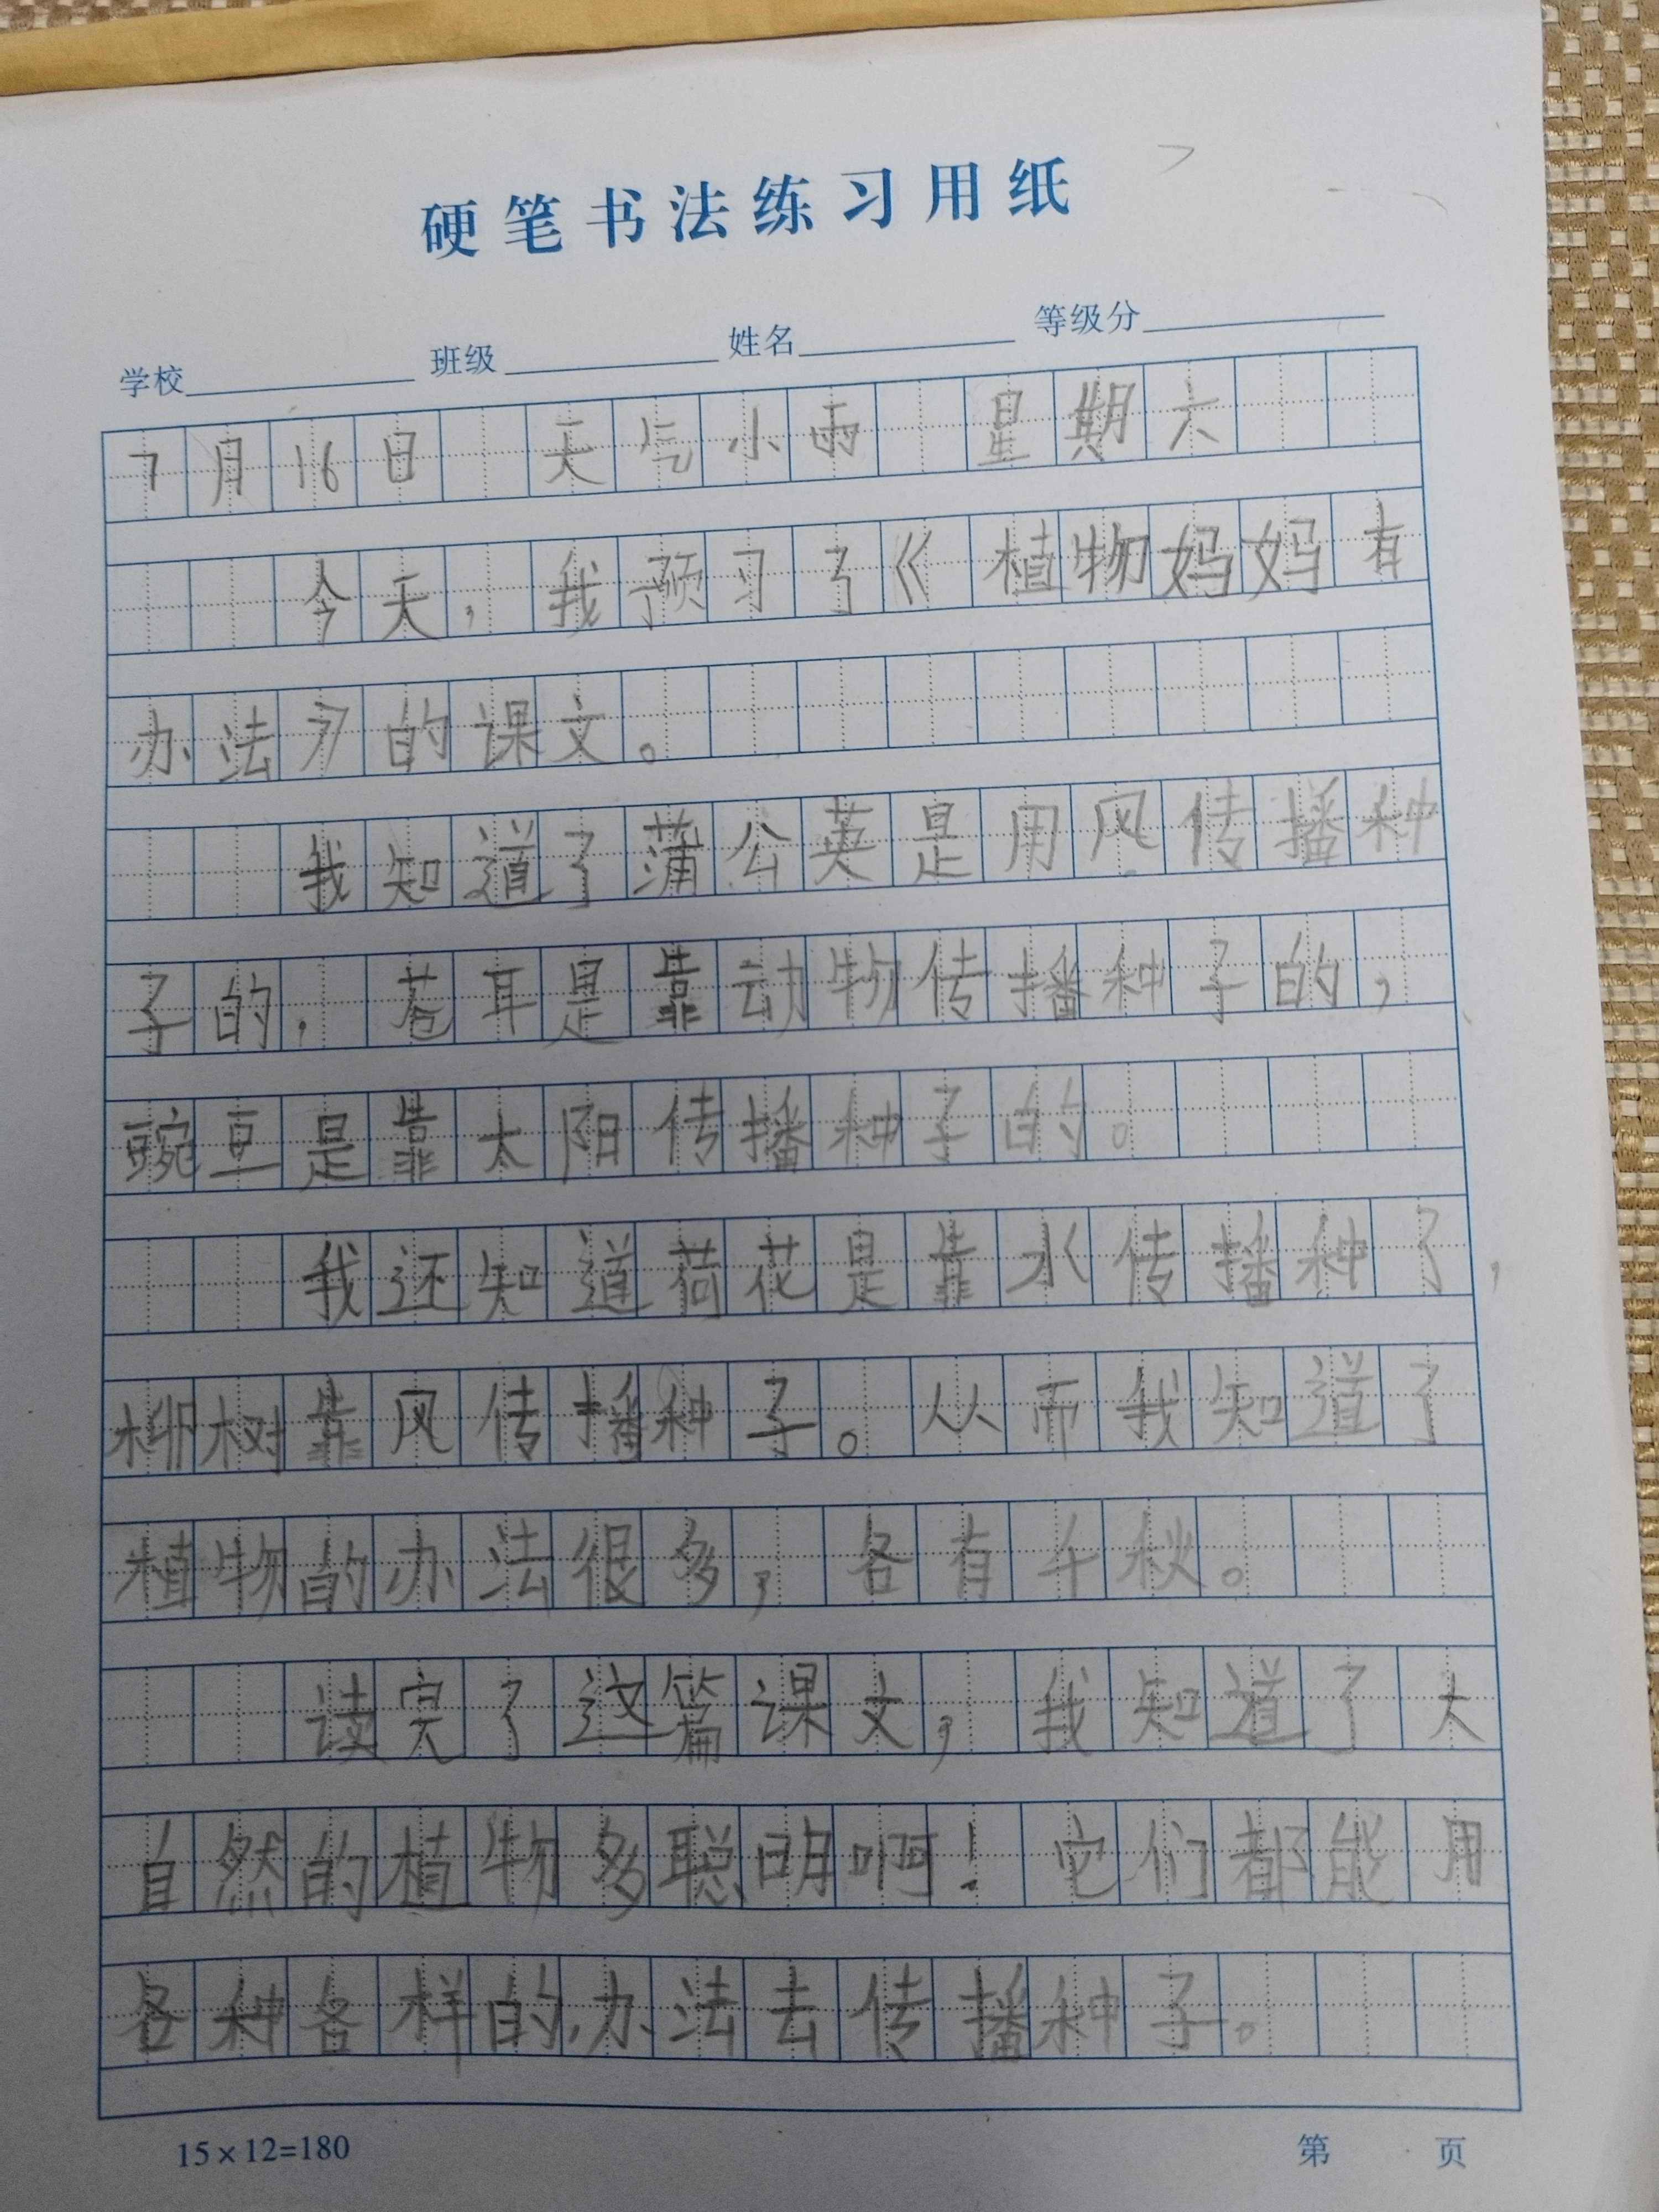 硬笔书法练习用纸
学校 班级 姓名 等级分
7月16日 天气小雨 星期六
今天，我预习了《植物妈妈有
办法》的课文。
我知道了蒲公英是用风传播种
子的，苍耳是靠动物传播种子的，
豌豆是靠太阳传播种子的。
我还知道荷花是靠水传播种了，
柳树靠风传播种子。从而我知道了
植物的办法很多，各有千秋。
读完了这篇课文，我知道了大
自然的植物多聪明啊！它们都能用
各种各样的办法去传播种子。
15×12=180
第 页